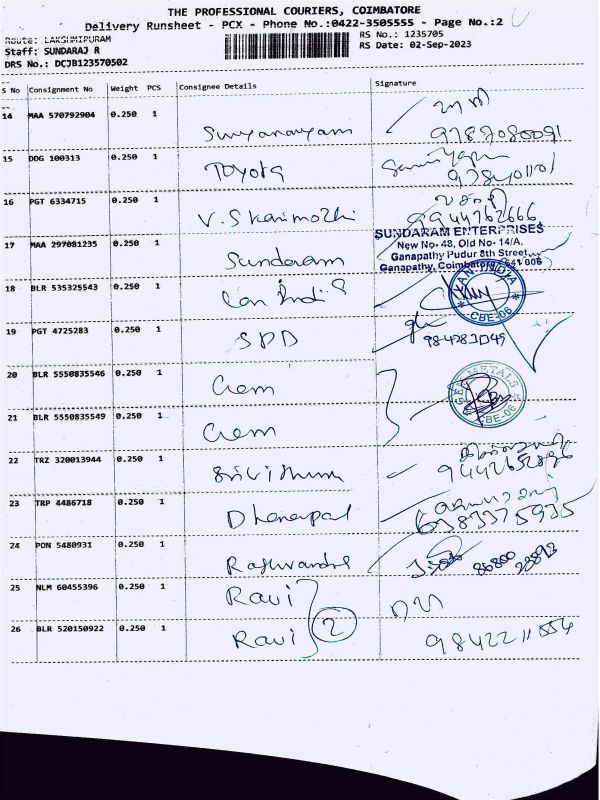 THE PROFESSIONAL COURIERS, COIMBATORE
Delivery Runsheet - PCX - Phone No.:0422-3505555 - Page No.:2
Route: LAKSHMIPURAM
RS No.: 1235705
Staff: SUNDARAJ R
RS Date: 02-Sep-2023
DRS No.: DCJB123570502
S No Consignment No Weight PCS Consignee Details Signature
14 MAA 570792904 0.250 1
15 DDG 100313 0.250 1 TOYOTA
16 PGT 6334715 0.250 1
9944762666
SUNDARAM ENTERPRISES
New No- 48, Old No- 14/A,
Ganapathy Pudur 8th Street,
Ganapathy, Coimbatore - 641 006
17 MAA 297081235 0.250 1 Sundaram
18 BLR 535325543 0.250 1 Can India
CAN INDIA
CBE-06
19 PGT 4725283 0.250 1 SPD
20 BLR 5550835546 0.250 1 Gem
GEM METALS
CBE-06
21 BLR 5550835549 0.250 1 Gem
22 TRZ 320013944 0.250 1
23 TRP 4486718 0.250 1 Dhanapal
6383375935
24 PDN 5480931 0.250 1
25 NLM 60455396 0.250 1 Ravi
2
26 BLR 520150922 0.250 1 Ravi